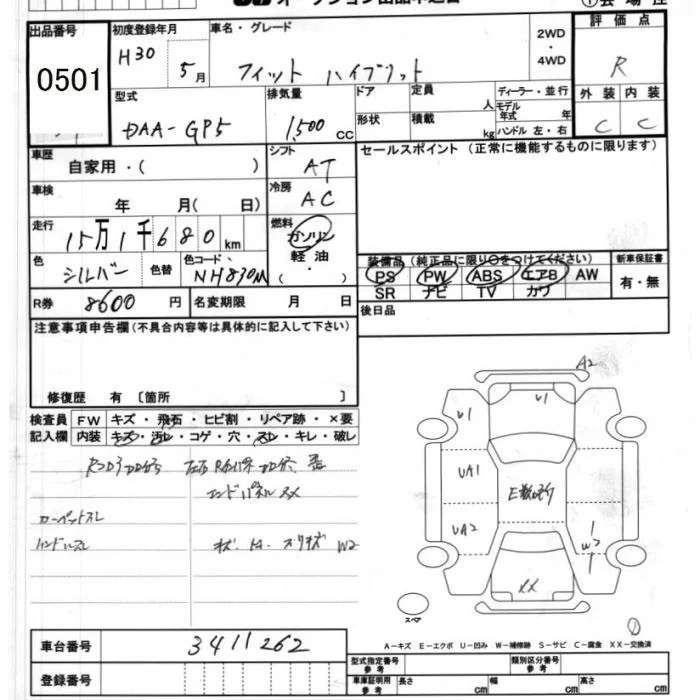 出品番号
0501
初度登録年月
H30 5月
車名・グレード
フィット ハイブリット
2WD
・
4WD
評価点
R
外装 内装
C C
型式
DAA-GP5
排気量
1,500 cc
ドア
形状
定員 人
積載 kg
ディーラー・並行
モデル年式 年
ハンドル 左・右
車歴
自家用・( )
シフト
AT
セールスポイント (正常に機能するものに限ります)
車検
年 月( 日)
冷房
AC
走行
15万1千680 km
燃料
ガソリン
軽油
( ・ )
色
シルバー
色替
色コード
NH830M
装備品(純正品に限り○をつけてください)
PS PW ABS エアB AW
SR ナビ TV カワ
新車保証書
有・無
R券 8600円
名変期限 月 日
後日品
注意事項申告欄(不具合内容等は具体的に記入して下さい)
修復歴 有 〔箇所 〕
検査員
記入欄
FW キズ・飛石・ヒビ割・リペア跡・×要
内装 キズ・汚レ・コゲ・穴・スレ・キレ・破レ
エンドパネルXX
カーペットスレ
ハンドルスレ
W2
A2
U1
U1
UA1
UA2
E数ヶ所
W2
XX
スペア
A－キズ E－エクボ U－凹み W－補修跡 S－サビ C－腐食 XX－交換済
車台番号
3411262
登録番号
型式指定番号
参考
類別区分番号
参考
車庫証明用
参考
長さ cm
幅 cm
高さ cm